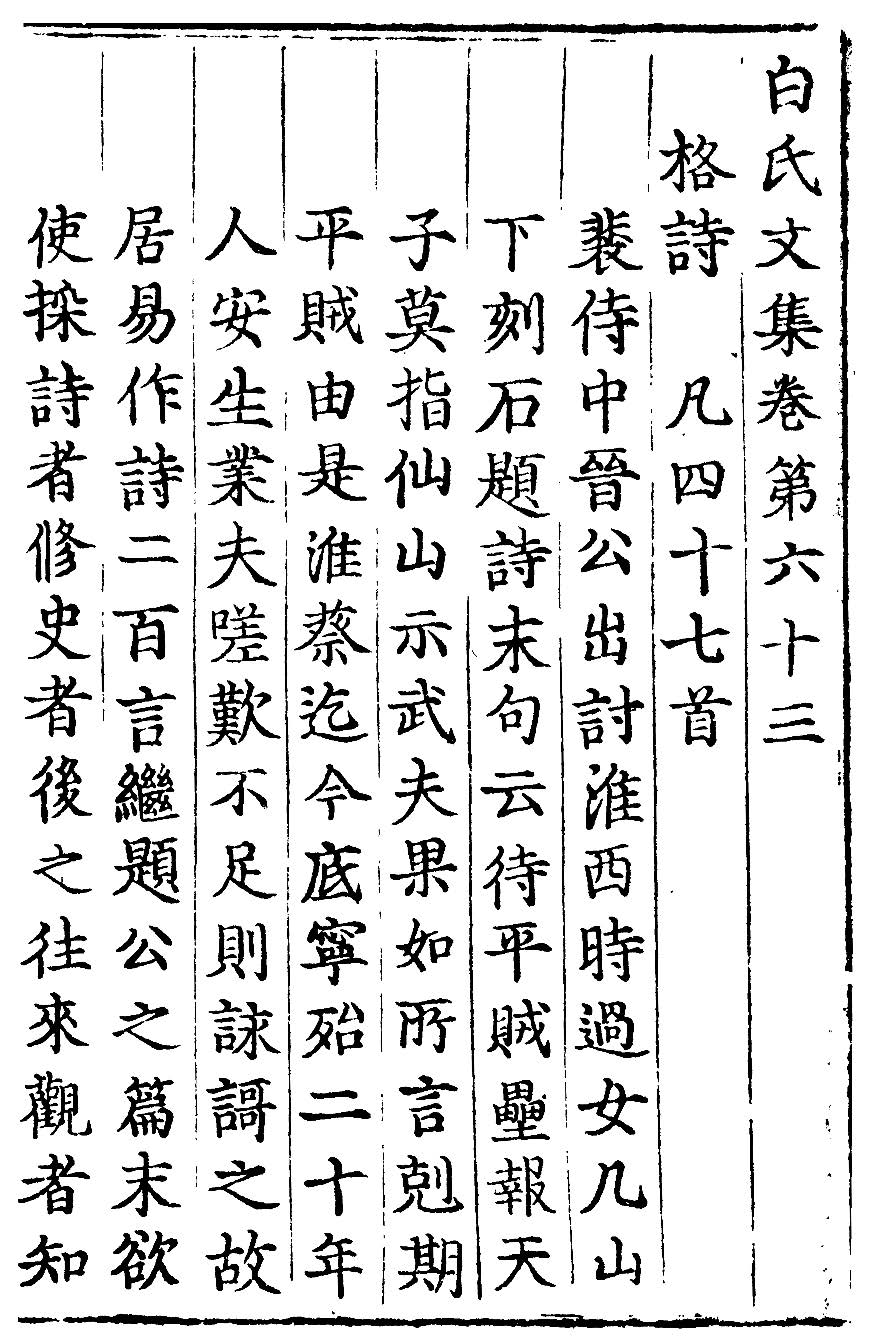 白氏文集卷第六十三
格詩 凡四十七首
裴侍中晉公出討淮西時過女几山
下刻石題詩末句云待平賊壘報天
子莫指仙山示武夫果如所言剋期
平賊由是淮蔡迄今底寧殆二十年
人安生業夫嗟歎不足則詠謌之故
居易作詩二百言繼題公之篇末欲
使採詩者修史者後之往來觀者知